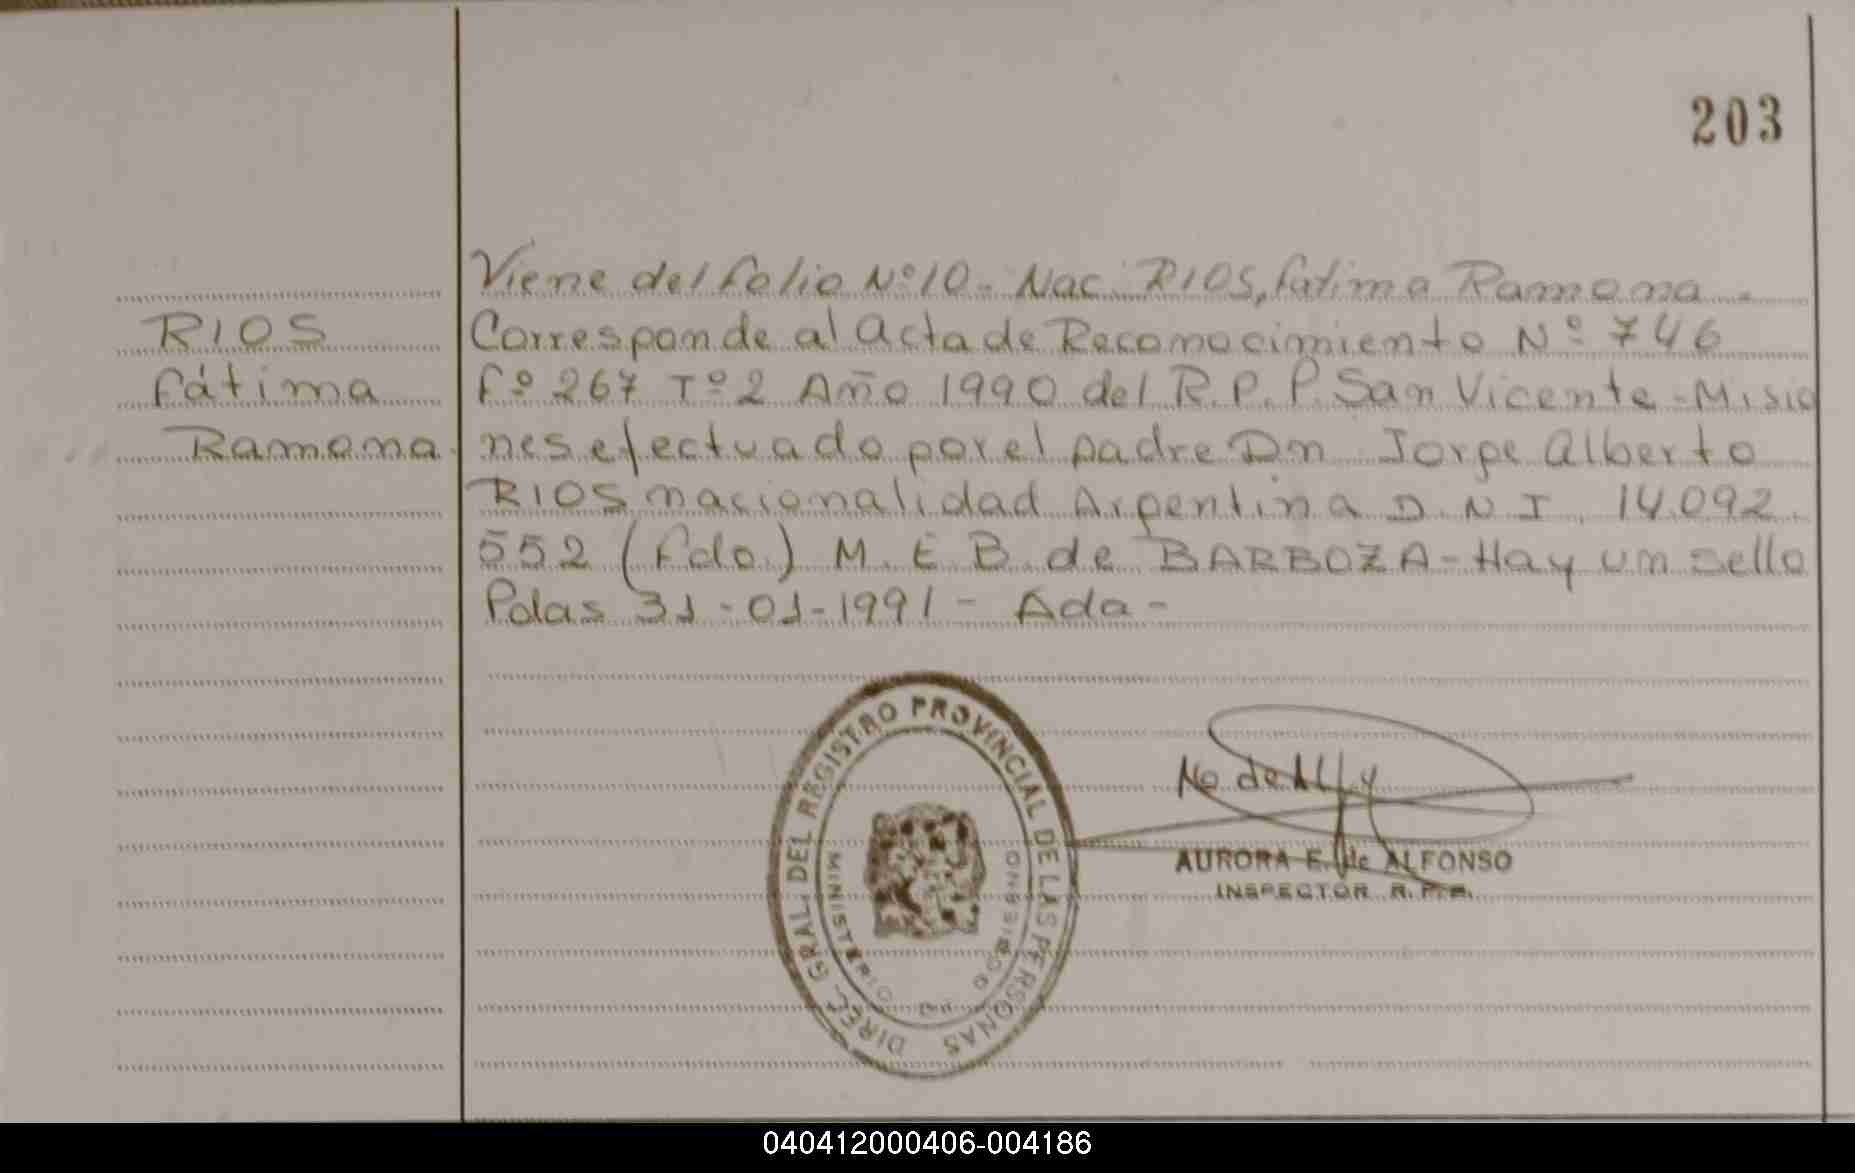 203
RIOS
Fátima
Ramona.
Viene del folio Nº10 - Nac. RIOS, fatima Ramona -
Corresponde al Acta de Reconocimiento Nº 746
Fº 267 Tº 2 Año 1990 del R.P.P. San Vicente - Misio
nes efectuado por el padre Dn Jorge Alberto
RIOS nacionalidad Argentina D.N.I. 14.092.
552 (Fdo.) M.E.B. de BARBOZA - Hay un sello
Pdas 31-01-1991 - Ada -
DIREC. GRAL. DEL REGISTRO PROVINCIAL DE LAS PERSONAS
MINISTERIO DE GOBIERNO
AURORA E. de ALFONSO
INSPECTOR R.P.P.
040412000406-004186